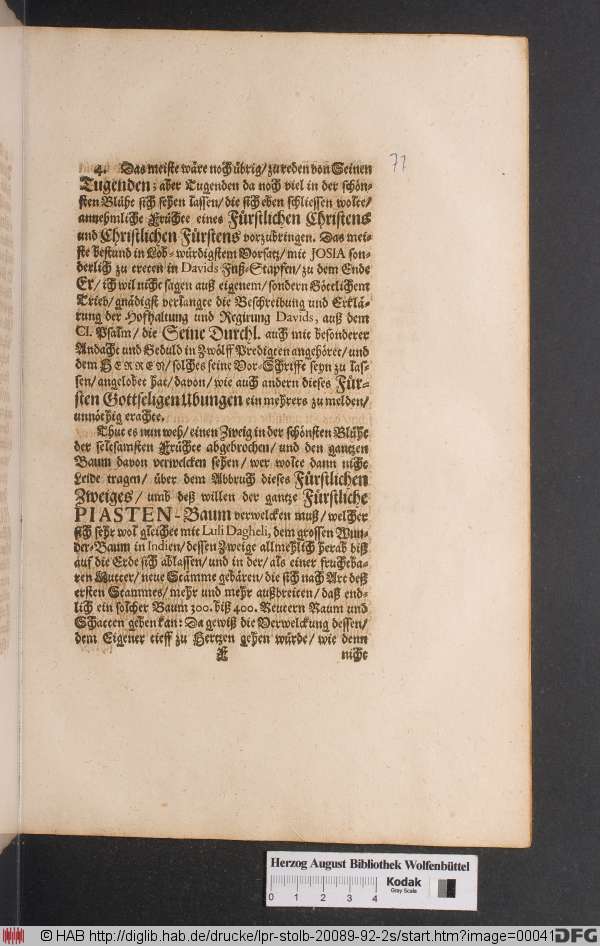 77
4. Das meiste wäre noch übrig/ zu reden von Seinen
Tugenden; aber Tugenden da noch viel in der schön-
sten Blühe sich sehen lassen/ die sich eben schliessen wolte/
annehmliche Früchte eines Fürstlichen Christens
und Christlichen Fürstens vorzubringen. Das mei-
ste bestund in Lob-würdigstem Vorsatz/ mit JOSIA son-
derlich zu treten in Davids Fuß-Stapfen/ zu dem Ende
Er/ ich wil nicht sagen auß eigenem/ sondern Göttlichem
Trieb/ gnädigst verlangte die Beschreibung und Erklä-
rung der Hofhaltung und Regirung Davids, auß dem
CI. Psalm/ die Seine Durchl. auch mit besonderer
Andacht und Geduld in Zwölff Predigten angehöret/ und
dem HERREN/ solches seine Vor-Schrifft seyn zu las-
sen/ angelobet hat/ davon/ wie auch andern dieses Für-
sten Gottseligen Ubungen ein mehrers zu melden/
unnöthig erachte.
Thut es nun weh/ einen Zweig in der schönsten Blühe
der seltsamsten Früchte abgebrochen/ und den gantzen
Baum davon verwelcken sehen/ wer wolte dann nicht
Leide tragen/ über dem Abbruch dieses Fürstlichen
Zweiges/ umb deß willen der gantze Fürstliche
PIASTEN-Baum verwelcken muß/ welcher
sich sehr wol gleichet mit Luli Dagheli, dem grossen Wun-
der-Baum in Indien/ dessen Zweige allmehlich herab biß
auf die Erde sich ablassen/ und in der/ als einer fruchtba-
ren Mutter/ neue Stämme gebären/ die sich nach Art deß
ersten Stammes/ mehr und mehr außbreiten/ daß end-
lich ein solcher Baum 300. biß 400. Reutern Raum und
Schatten geben kan: Da gewiß die Verwelckung dessen/
dem Eigener tieff zu Hertzen gehen würde/ wie denn
F nicht
Herzog August Bibliothek Wolfenbüttel
0 1 2 3 4 Kodak
Gray Scale
© HAB http://diglib.hab.de/drucke/lpr-stolb-20089-92-2s/start.htm?image=00041 DFG